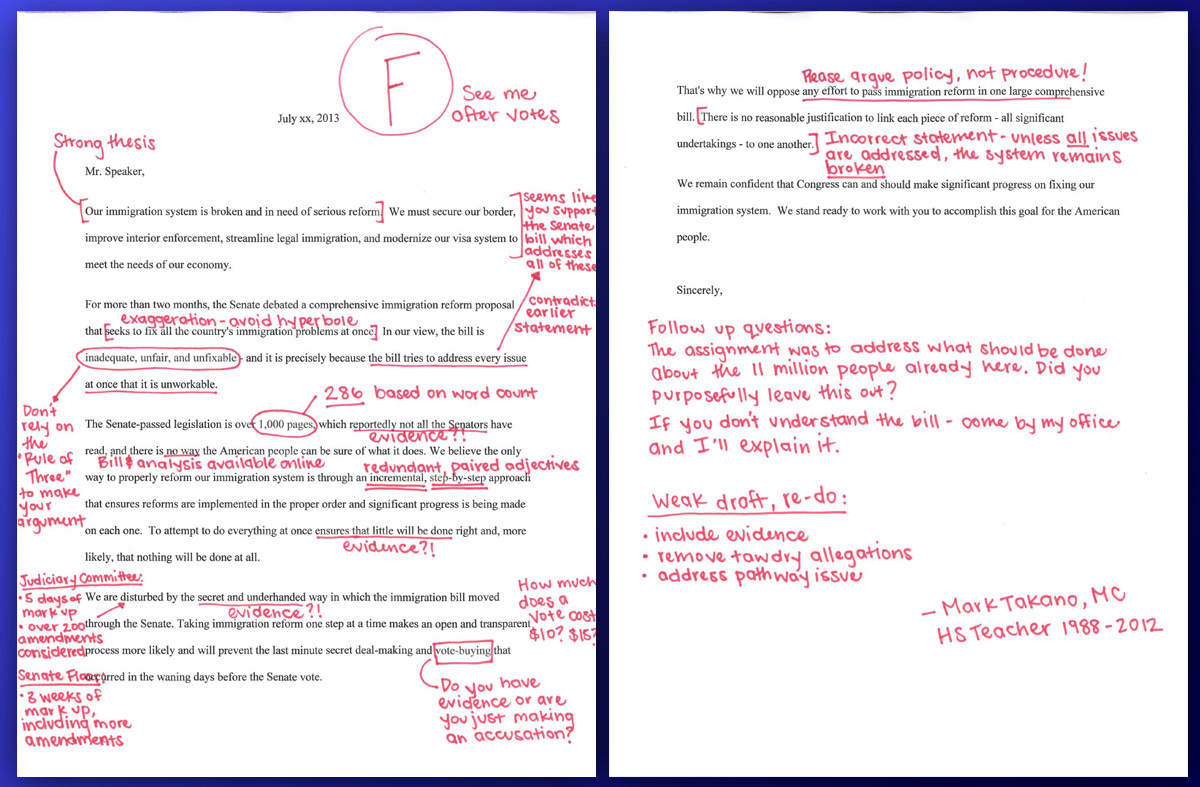 F
See me
after votes
July xx, 2013
Strong thesis
Mr. Speaker,
[Our immigration system is broken and in need of serious reform.] We must secure our border,
improve interior enforcement, streamline legal immigration, and modernize our visa system to
meet the needs of our economy.
seems like
you support
the Senate
bill which
addresses
all of these
For more than two months, the Senate debated a comprehensive immigration reform proposal
exaggeration - avoid hyperbole
that [seeks to fix all the country's immigration problems at once.] In our view, the bill is
inadequate, unfair, and unfixable - and it is precisely because the bill tries to address every issue
at once that it is unworkable.
contradict
earlier
statement
Don't
rely on
the
"Rule of
Three"
to make
your
argument
286 based on word count
The Senate-passed legislation is over 1,000 pages, which reportedly not all the Senators have
evidence?!
read, and there is no way the American people can be sure of what it does. We believe the only
Bill & analysis available online
redundant, paired adjectives
way to properly reform our immigration system is through an incremental, step-by-step approach
that ensures reforms are implemented in the proper order and significant progress is being made
on each one. To attempt to do everything at once ensures that little will be done right and, more
evidence?!
likely, that nothing will be done at all.
Judiciary Committee:
• 5 days of
mark up
• over 200
amendments
considered
We are disturbed by the secret and underhanded way in which the immigration bill moved
evidence?!
through the Senate. Taking immigration reform one step at a time makes an open and transparent
process more likely and will prevent the last minute secret deal-making and vote-buying that
occurred in the waning days before the Senate vote.
How much
does a
vote cost
$10? $15?
Senate Floor:
• 3 weeks of
mark up,
including more
amendments
Do you have
evidence or are
you just making
an accusation?
Please argue policy, not procedure!
That's why we will oppose any effort to pass immigration reform in one large comprehensive
bill. [There is no reasonable justification to link each piece of reform - all significant
undertakings - to one another.]
Incorrect statement - unless all issues
are addressed, the system remains
broken
We remain confident that Congress can and should make significant progress on fixing our
immigration system. We stand ready to work with you to accomplish this goal for the American
people.
Sincerely,
Follow up questions:
The assignment was to address what should be done
about the 11 million people already here. Did you
purposefully leave this out?
If you don't understand the bill - come by my office
and I'll explain it.
Weak draft, re-do:
• include evidence
• remove tawdry allegations
• address pathway issue
- Mark Takano, MC
HS Teacher 1988-2012